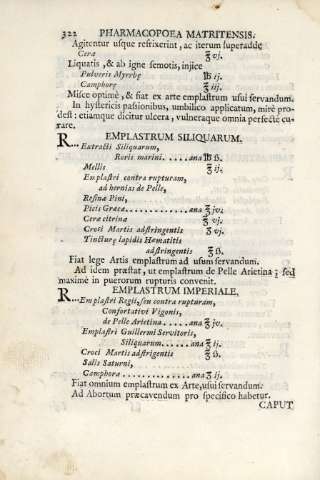 322 PHARMACOPOEA MATRITENSIS.
Agitentur usque refrixerint, ac iterum superadde
Cera ℥ vj.
Liquatis, & ab igne semotis, injice
Pulveris Myrrhę ℔ ij.
Camphorę ℥ iij.
Misce optimè, & fiat ex arte emplastrum usui servandum.
In hystericis passionibus, umbilico applicatum, mirè pro-
dest: etiamque dicitur ulcera, vulneraque omnia perfectè cu-
rare.
EMPLASTRUM SILIQUARUM.
R... Extracti Siliquarum,
Roris marini. . . . . ana ℔ ß.
Mellis ℥ ij.
Emplastri contra rupturam,
ad hernias de Pelle,
Resinæ Pini,
Picis Græcæ. . . . . . . . . . ana ℥ jv.
Ceræ citrinæ ℥ vj.
Croci Martis adstringentis ℥ vj.
Tincturę lapidis Hæmatitis
adstringentis ℥ ß.
Fiat lege Artis emplastrum ad usum servandum.
Ad idem præstat, ut emplastrum de Pelle Arietina; sed
maximè in puerorum rupturis convenit.
EMPLASTRUM IMPERIALE,
R... Emplastri Regii, seu contra rupturam,
Confortativi Vigonis,
de Pelle Arietina. . . . . ana ℥ jv.
Emplastri Guillermi Servitoris,
Siliquarum. . . . . ana ℥ ij.
Croci Martis adstrigentis ℥ ß.
Salis Saturni,
Camphoræ . . . . . . . . . . . . . ana ℥ ij.
Fiat omnium emplastrum ex Arte, usui servandum.
Ad Abortum præcavendum pro specifico habetur.
CAPUT